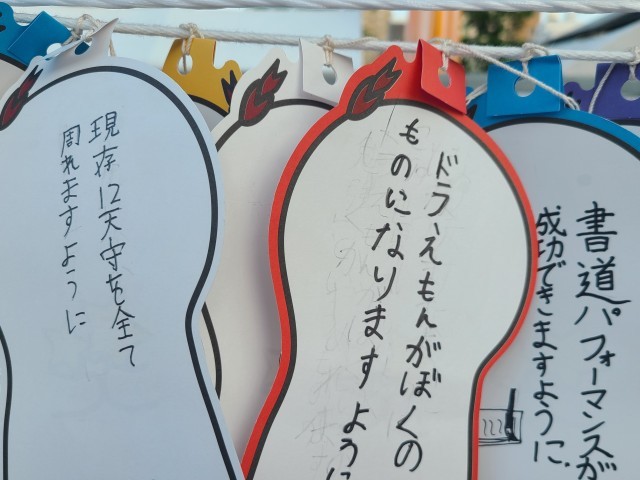 現存12天守を全て
周れますように
ドラえもんがぼくの
ものになりますように
書道パフォーマンスが
成功できますように.